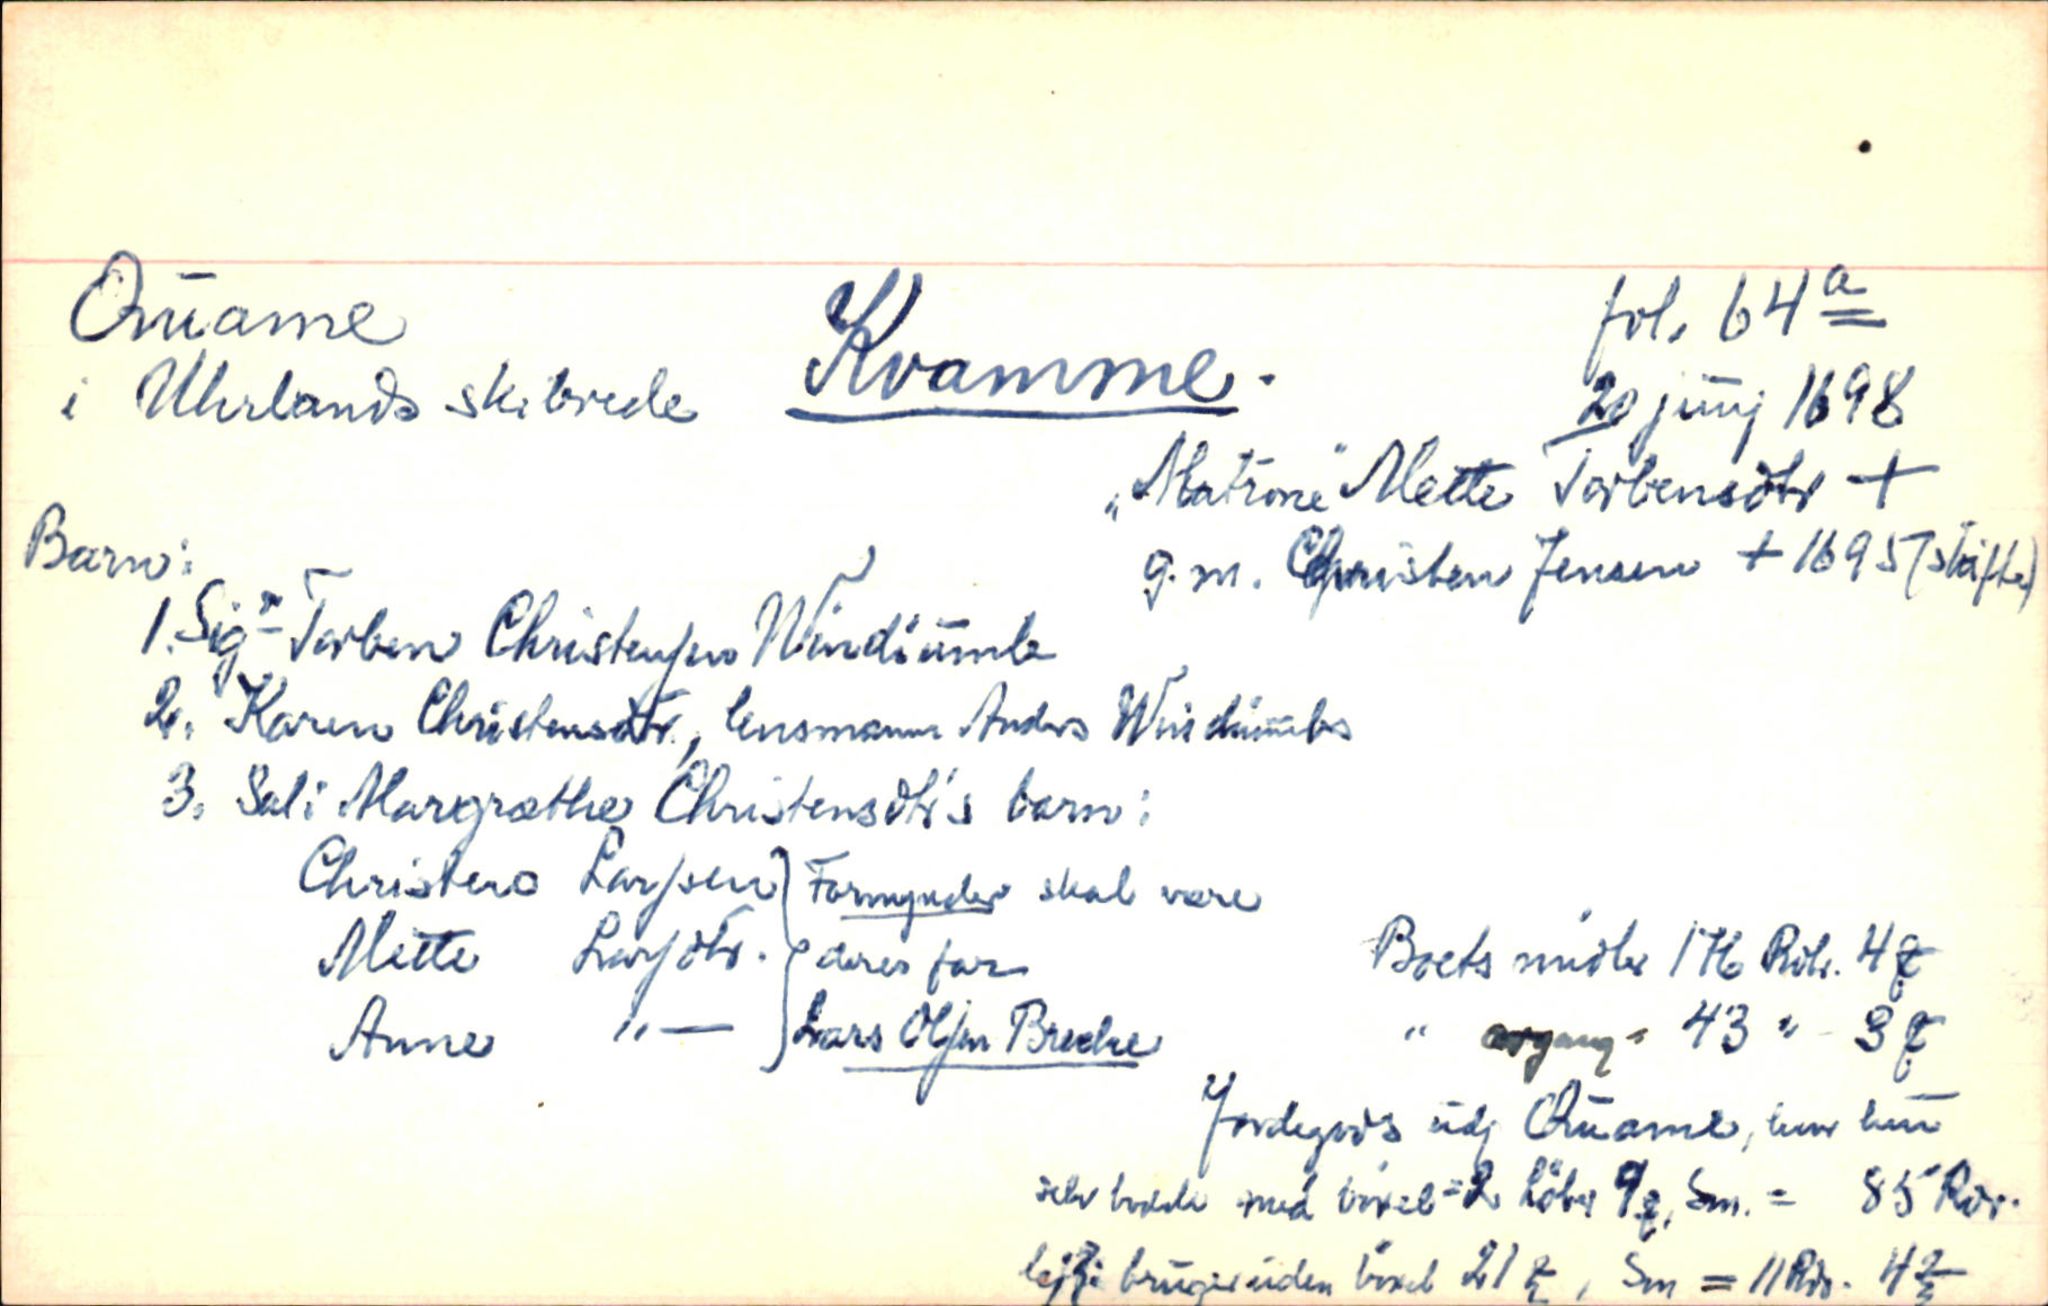 Quame
i Uhrlands skibrede
Kvamme.
fol. 64a
20 junj 1698
"Matrone" Mette Torbensdtr +
g.m. Christen Jensen + 1695 (skifte)
Barn:
1. Sigr Torben Christensen Windjumle
2. Karen Christensdtr., lensmann Anders Windjumles
3. Sali Margrethe Christensdtr's barn:
Christen Larssen } Formynder skal være
Mette Larsdtr. } deres far
Anne "— } Lars Olsen Brecke
Boets midler 176 Rdr. 4 ß
" avgang " 43 " 3 ß
Jordegods udj Quame, hvor hun
selv bodde med bøxel = 2 Løber 9 ß, Sm. = 85 Rdr.
brugje uden bøxel 21 ß, Sm = 11 Rdr. 4 ß